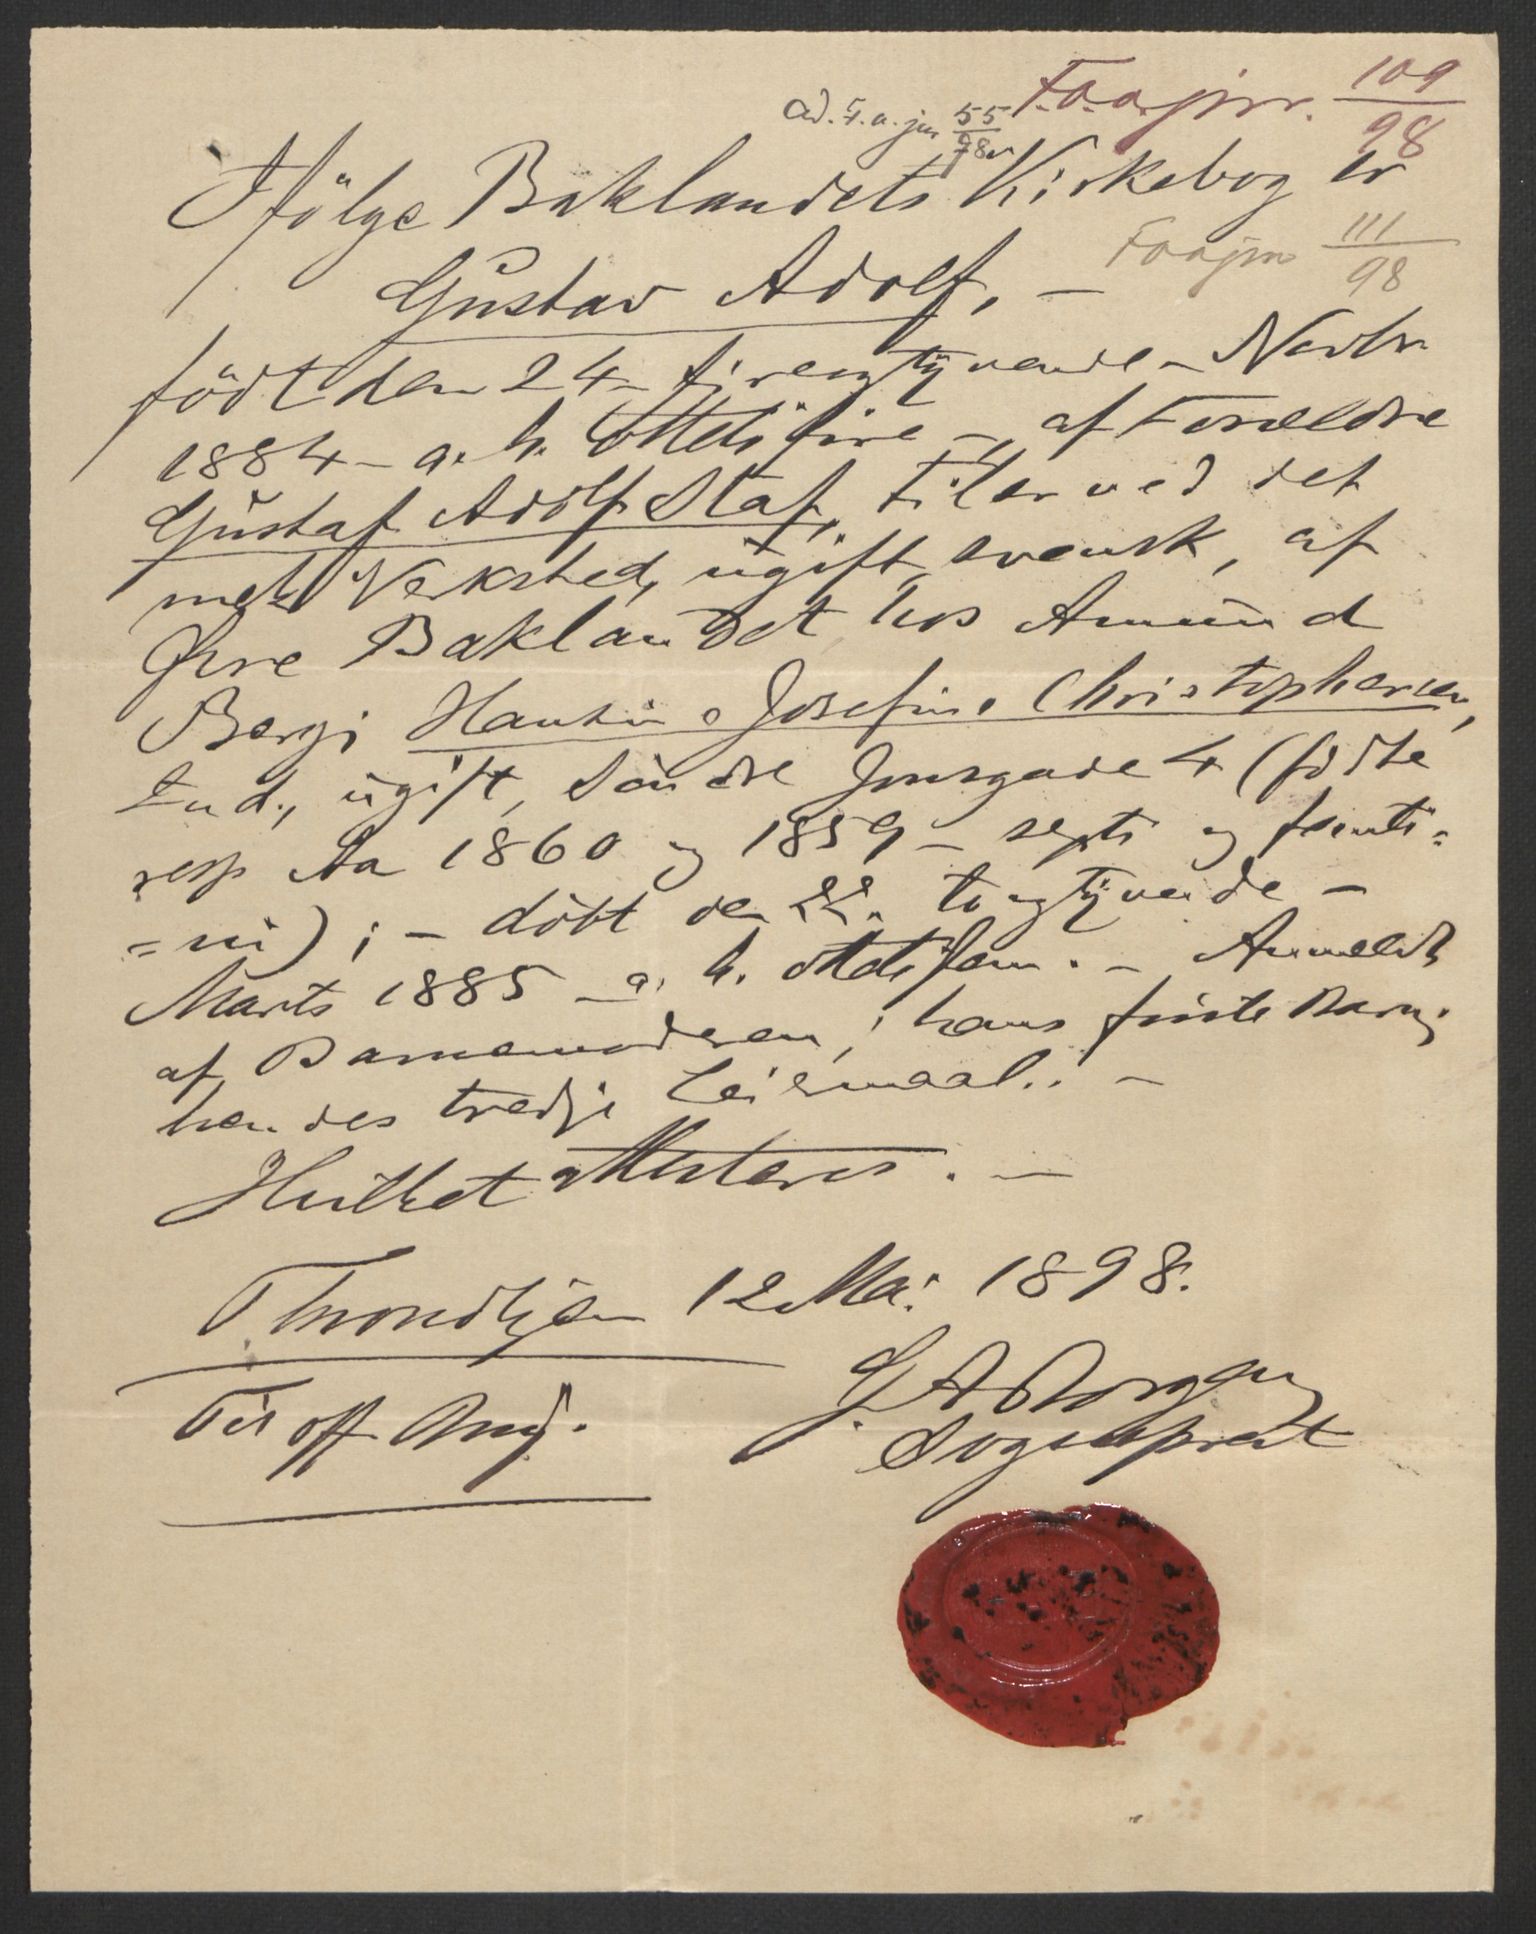 ad. F.a.jnr 55/98
F.a.a.jnr. 109/98
Ifölge Baklandets Kirkebog er
Faajnr 111/98
Gustav Adolf, –
födt den 24 – fireogtyvende – Novbr
1884 – a. h. ottetifire –, af Forældre
Gustaf Adolf Staf, Filer ved det
mek Verksted, ugift, svensk, af
Øvre Baklandet hos Amund
Berg; Hansine Josefine Christophersen,
Ind., ugift, Söndre Jonsgade 4 (födte
resp Aa 1860 og 1859 – sexti og femti=
=ni) ; – döbt den 22. toogtyvende –
Marts 1885 – a. h. ottetifem. – Anmeldt
af Barnemoderen; hans förste Barn;
hendes tredje Leiermaal. –
Hvilket attesteres. –
Throndhjem 12 Mai 1898.
Til off Brug.
Sogneprest